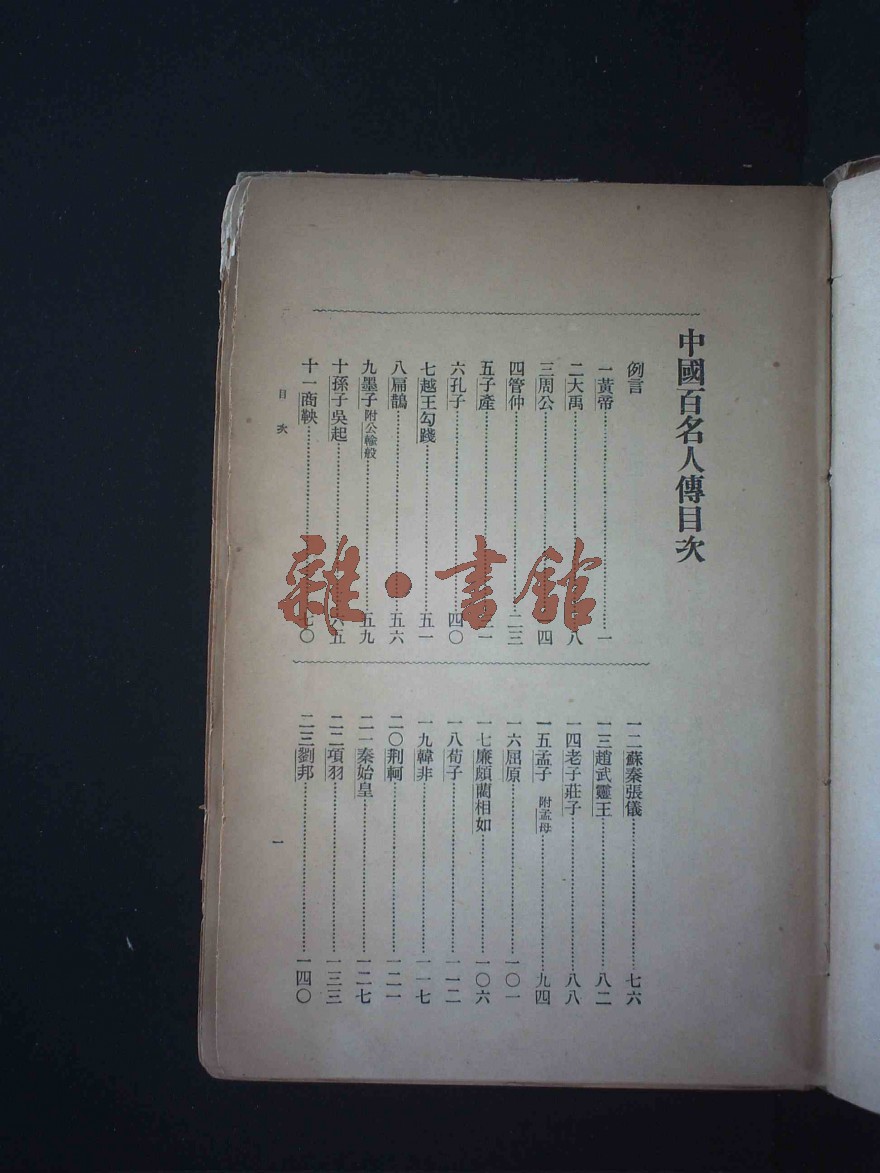 中國百名人傳目次
例言
一黃帝……一
二大禹……八
三周公……四
四管仲……二三
五子產……一
六孔子……四〇
七越王勾踐……五一
八扁鵲……五六
九墨子 附公輸般……五九
十孫子吳起……六五
十一商鞅……七〇
一二蘇秦張儀……七六
一三趙武靈王……八二
一四老子莊子……八八
一五孟子 附孟母……九四
一六屈原……一〇一
一七廉頗藺相如……一〇六
一八荀子……一一二
一九韓非……一一七
二〇荆軻……一二一
二一秦始皇……一二七
二二項羽……一三三
二三劉邦……一四〇
目次
一
雜·書館